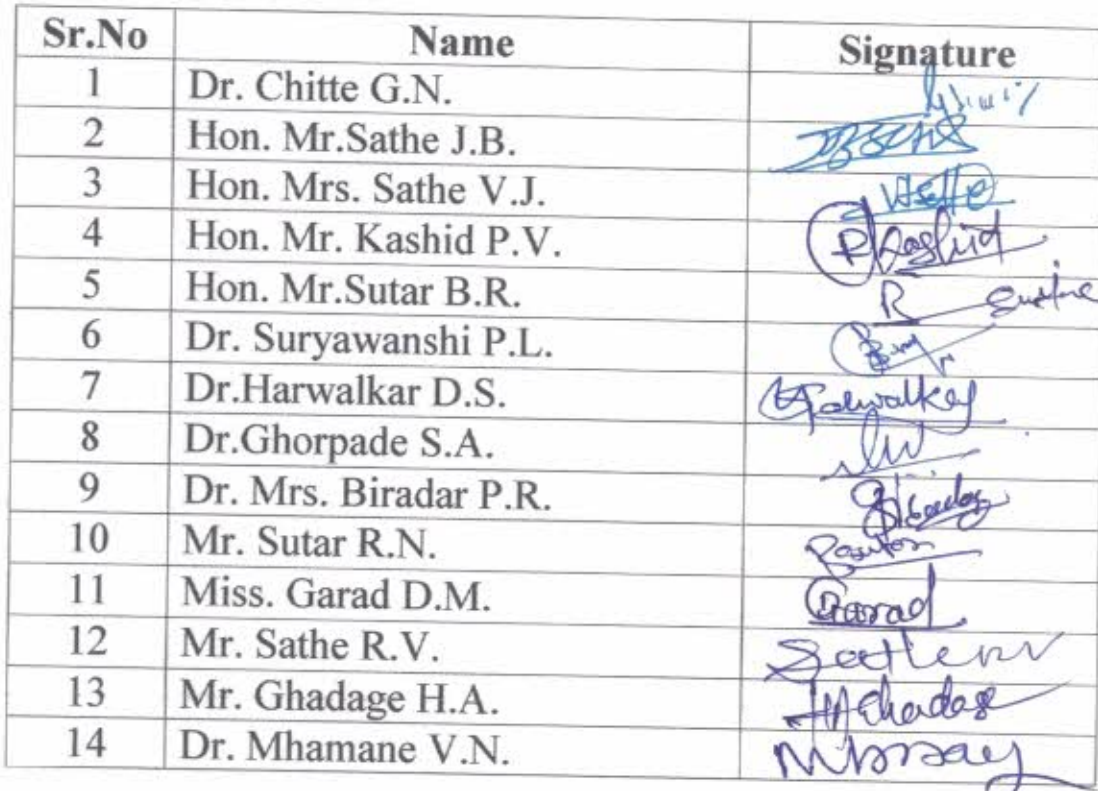 Sr.No Name Signature
1 Dr. Chitte G.N.
2 Hon. Mr.Sathe J.B.
3 Hon. Mrs. Sathe V.J.
4 Hon. Mr. Kashid P.V. PKashid
5 Hon. Mr.Sutar B.R.
6 Dr. Suryawanshi P.L.
7 Dr.Harwalkar D.S.
8 Dr.Ghorpade S.A.
9 Dr. Mrs. Biradar P.R.
10 Mr. Sutar R.N.
11 Miss. Garad D.M. Garad
12 Mr. Sathe R.V. SatheRV
13 Mr. Ghadage H.A. HAGhadage
14 Dr. Mhamane V.N.